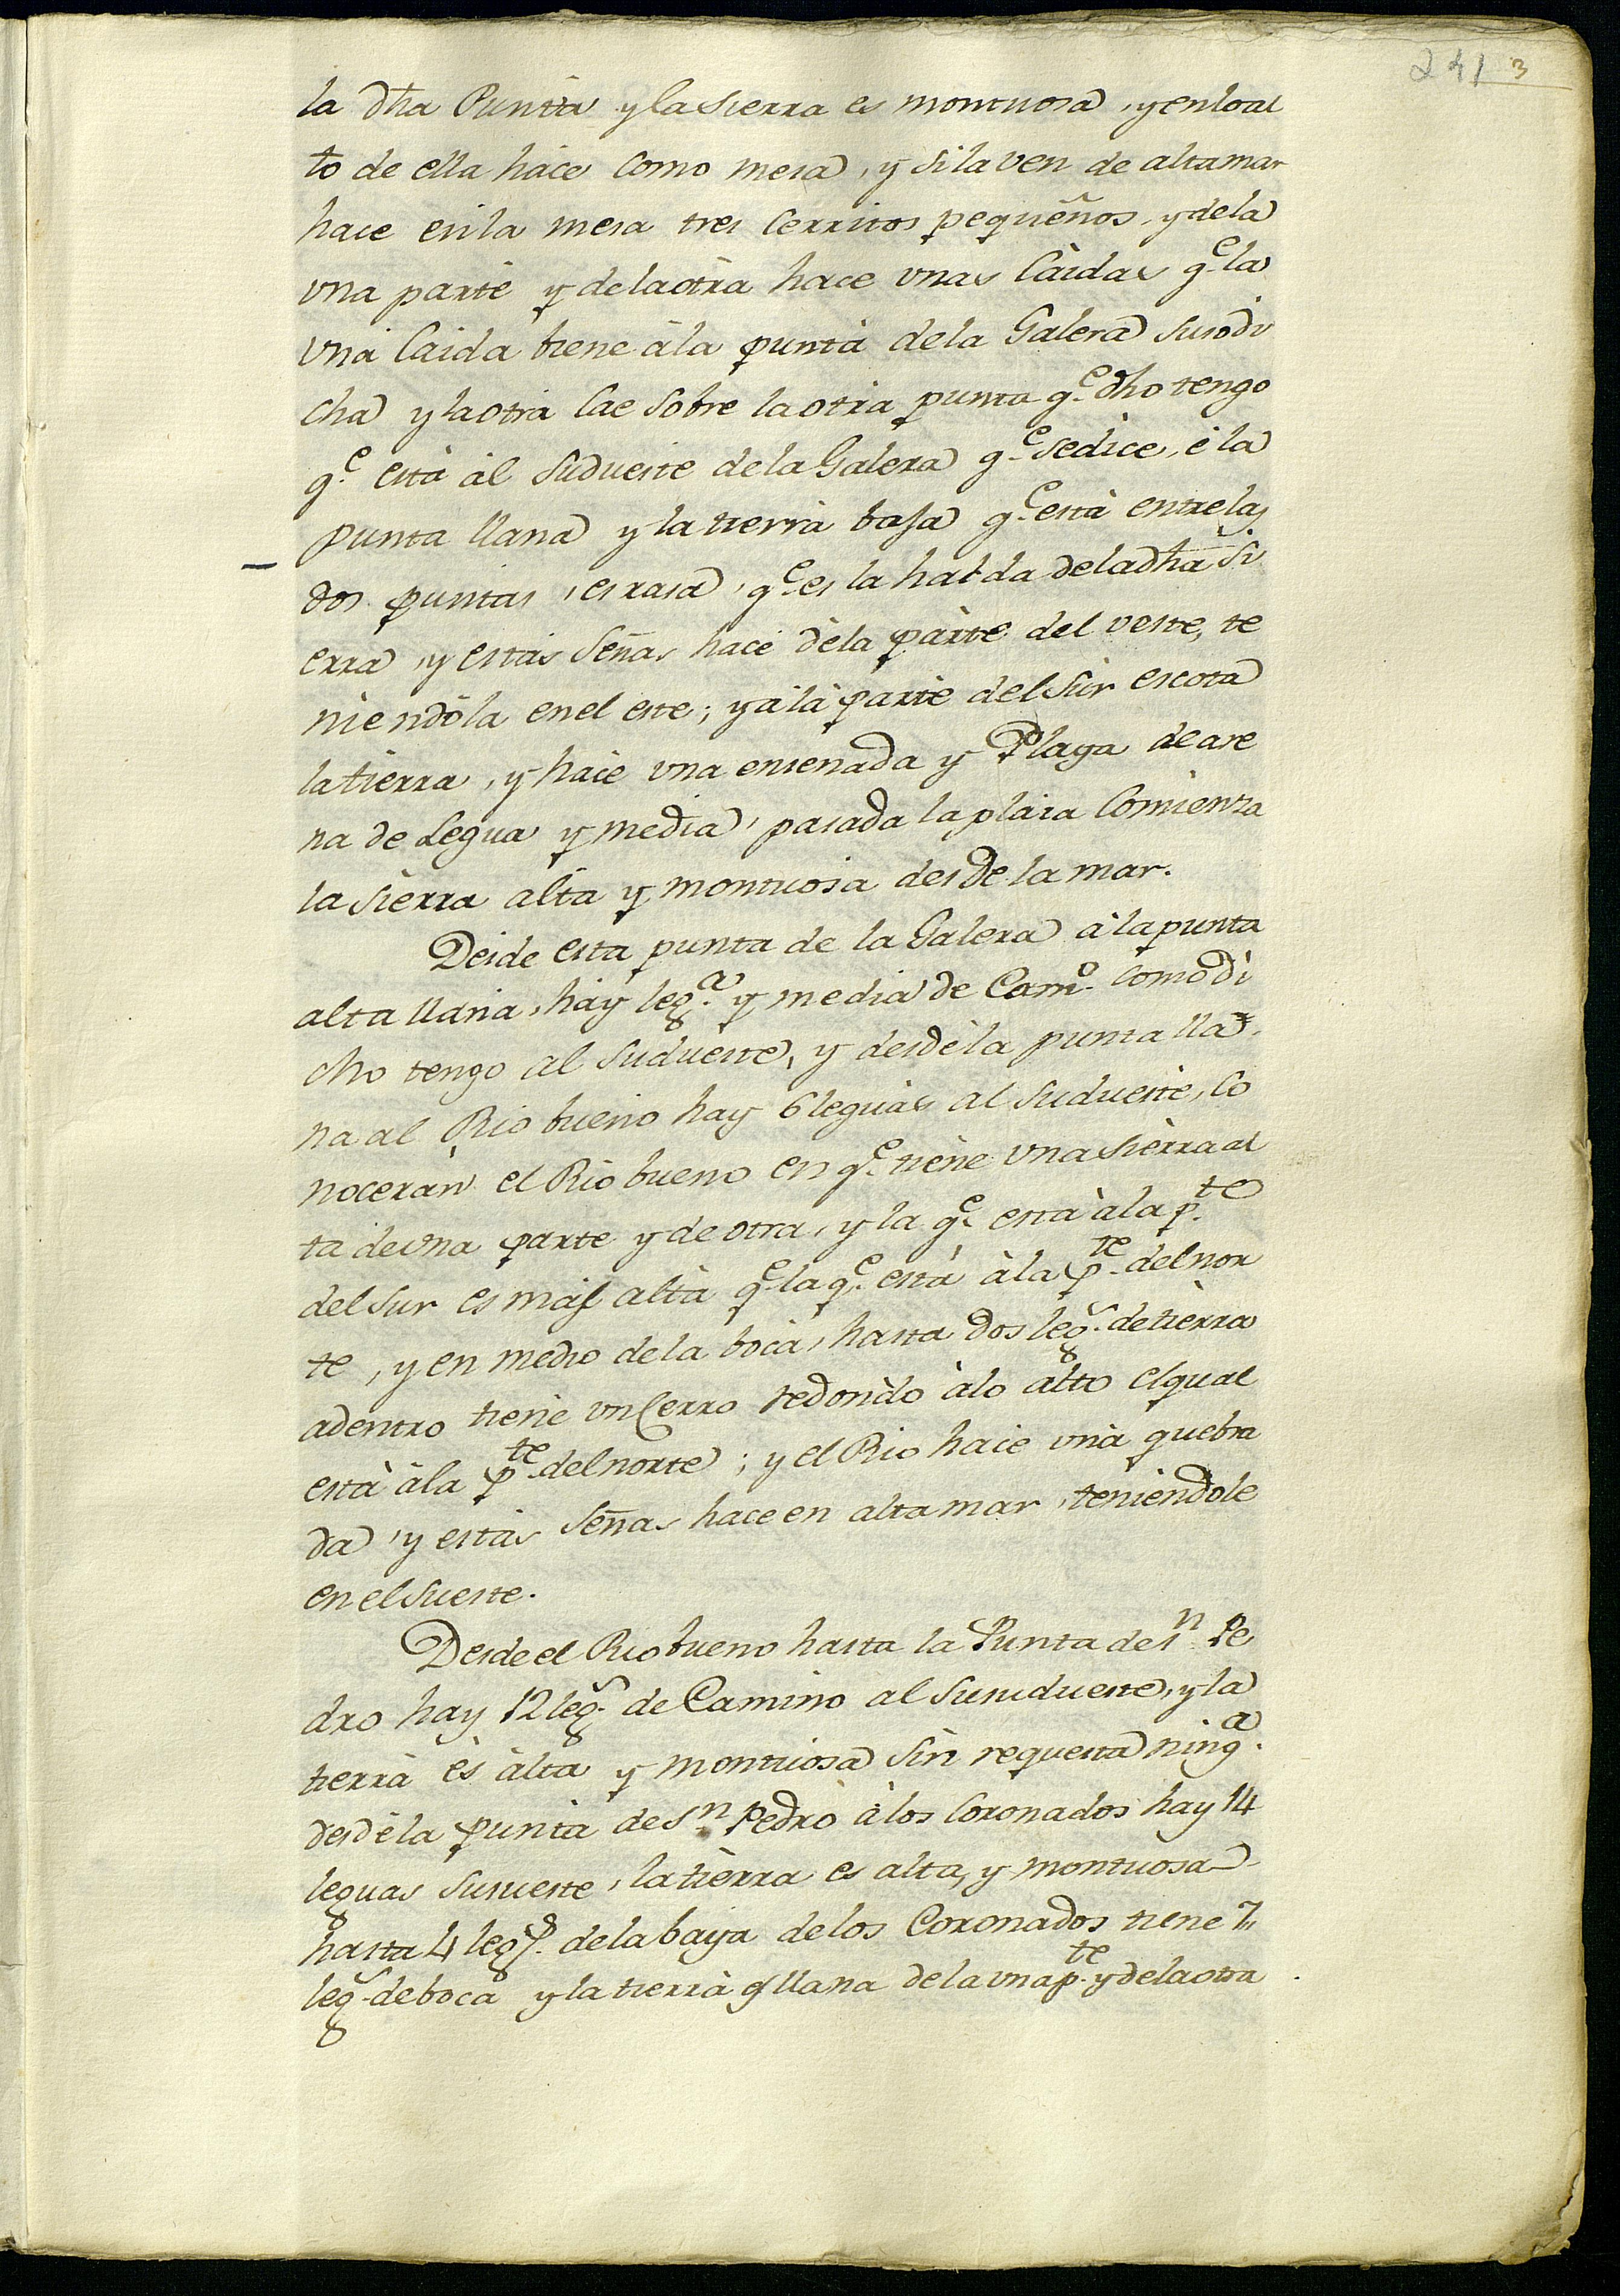 241 3
la dha Punta y la sierra es montuosa, y en lo al
to de ella hace como mesa, y si la ven de alta mar
hace en la mesa tres Cerritos pequeños, y de la
una parte y de la otra hace unas Caidas qe la
una Caida tiene à la punta de la Galera susodi
cha y la otra Cae sobre la otra punta qe dho tengo
qe està àl sudueste de la Galera qe se dice, è la
punta llana y la tierra baja qe està entre las
dos puntas, es rasa, qe es la halda de la dha Si
erra, y estas señas hace de la parte del veste, te
niendola en el este; y à la parte del Sur escota
la tierra, y hace una ensenada y Playa de are
na de Legua y media, pasada la plaia Comienza
la sierra alta y montuosa desde la mar.
Desde esta punta de la Galera à la punta
alta llana, hay lega. y media de Camo. como di
cho tengo al sudueste, y desde la punta lla
na al Rio bueno hay 6 leguas al sudueste, Co
noceràn el Rio bueno en qe tiene una sierra al
ta de una parte y de otra, y la qe està à la pte
del sur es mas alta qe la qe està à la pte del nor
te, y en medio de la boca, hasta dos legs. de tierra
adentro tiene un Cerro redondo à lo alto el qual
està à la pte del norte; y el Rio hace una quebra
da, y estas señas hace en alta mar, teniendole
en el sueste.
Desde el Rio bueno hasta la Punta de Sn Pe
dro hay 12 legs. de Camino al susudueste, y la
tierra ès àlta y montuosa sin requesta ninga.
desde la punta de Sn Pedro à los Coronados hay 14
leguas susueste, la tierra es alta, y montuosa
hasta 4 legs. de la baya de los Coronados tiene 7
legs. de boca y la tierra es llana de la una pte y de la otra